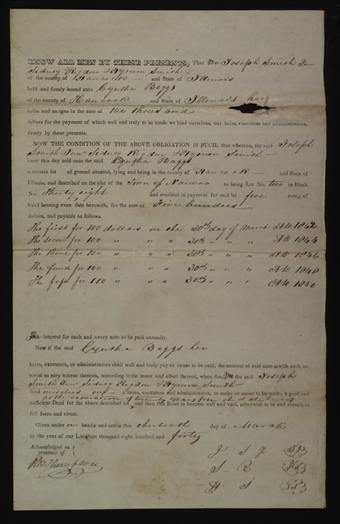 KNOW ALL MEN BY THESE PRESENTS, That We Joseph Smith Jr
Sidney Rigdon & Hyrum Smith
of the county of Hancock and State of Illinois
held and firmly bound unto Cyntha Baggs
of the county of Hancock and State of Illinois
heirs and assigns in the sum of One thousand
dollars for the payment of which well and truly to be made we bind ourselves, our heirs, executors and administrators,
firmly by these presents.
NOW THE CONDITION OF THE ABOVE OBLIGATION IS SUCH, that whereas, the said Joseph
Smith Jun Sidney Rigdon & Hyrum Smith
have this day sold unto the said Cyntha Baggs
a certain lot of ground situated, lying and being in the county of Hancock and State of
Illinois, and described on the plat of the Town of Nauvoo as being Lot No. two in Block
No. Thirty eight and received in payment for said lot five
bearing even date herewith, for the sum of Five hundred
dollars, and payable as follows.
The first for 100 dollars on the 30th day of March AD 1842
The second for 100 " " " 30th " AD 1844
The third for 100 " " " 30th " AD 1846
The fourth for 100 " " " 30th " AD 1848
The fifth for 100 " " " 30th " AD 1850
The interest for each and every note to be paid annually.
Now if the said Cyntha Baggs her
heirs, executors, or administrators, shall well and truly pay or cause to be paid, the amount of said notes with
interest as may accrue thereon, according to the tenor and effect thereof, when due, the said Joseph
Smith Jun Sidney Rigdon & Hyrum Smith
heirs, executors, and administrators, to make or cause to be made, a good and
sufficient Deed for the above described lot, and then this Bond to become null and void, otherwise to be and remain in
full force and virtue.
Given under our hands and seals this day of March
in the year of our Lord one thousand eight hundred and forty
Acknowledged in
presence of
R B Thompson
J S J
S R
H S